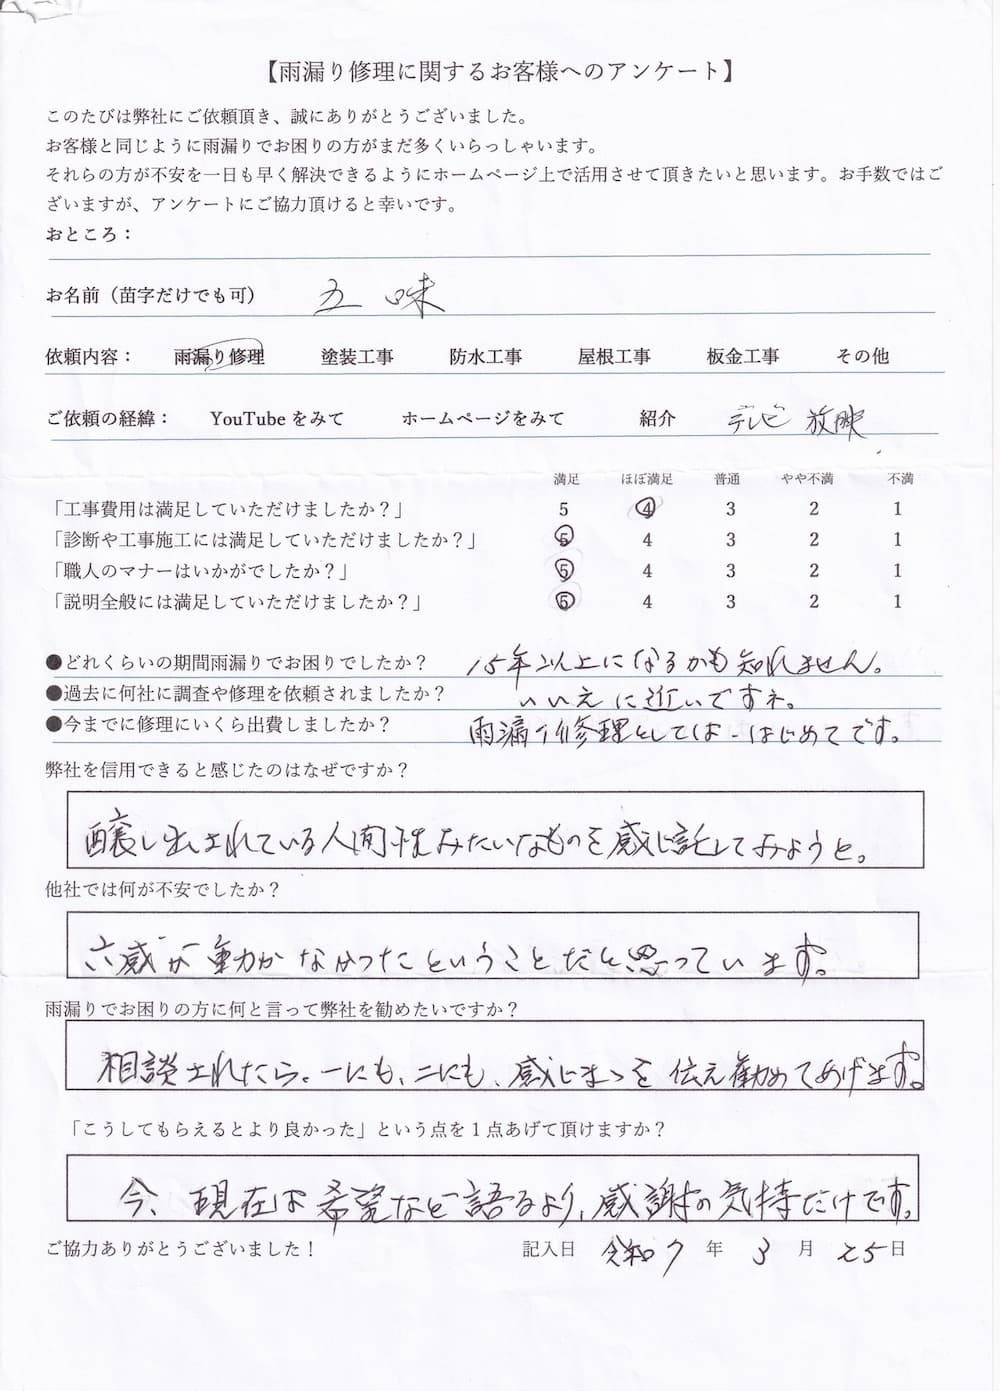 【雨漏り修理に関するお客様へのアンケート】
このたびは弊社にご依頼頂き、誠にありがとうございました。
お客様と同じように雨漏りでお困りの方がまだ多くいらっしゃいます。
それらの方が不安を一日も早く解決できるようにホームページ上で活用させて頂きたいと思います。お手数ではご
ざいますが、アンケートにご協力頂けると幸いです。
おところ：
お名前（苗字だけでも可） 五味
依頼内容： 雨漏り修理 塗装工事 防水工事 屋根工事 板金工事 その他
ご依頼の経緯： YouTubeをみて ホームページをみて 紹介 テレビ放映
満足 ほぼ満足 普通 やや不満 不満
「工事費用は満足していただけましたか？」 5 4 3 2 1
「診断や工事施工には満足していただけましたか？」 5 4 3 2 1
「職人のマナーはいかがでしたか？」 5 4 3 2 1
「説明全般には満足していただけましたか？」 5 4 3 2 1
●どれくらいの期間雨漏りでお困りでしたか？ 15年以上になるかも知れません。
●過去に何社に調査や修理を依頼されましたか？ いいえに近いですネ。
●今までに修理にいくら出費しましたか？ 雨漏り修理としては、はじめてです。
弊社を信用できると感じたのはなぜですか？
醸し出されている人間性みたいなものを感じ託してみようと。
他社では何が不安でしたか？
六感が動かなかったということだと思っています。
雨漏りでお困りの方に何と言って弊社を勧めたいですか？
相談されたら、一にも、二にも、感じまゝを伝え勧めてあげます。
「こうしてもらえるとより良かった」という点を1点あげて頂けますか？
今、現在は希望など語るより、感謝の気持だけです。
ご協力ありがとうございました！ 記入日 令和7年3月25日